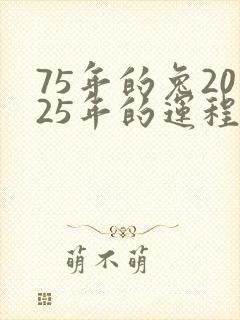 75年的兔20
25年的运程
萌不萌